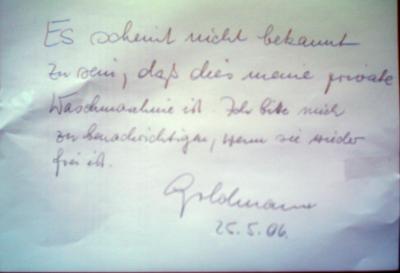 Es scheint nicht bekannt
zu sein, daß dies meine private
Waschmaschine ist. Ich bitte mich
zu benachrichtigen, wenn sie wieder
frei ist.
Goldmann
25.5.06